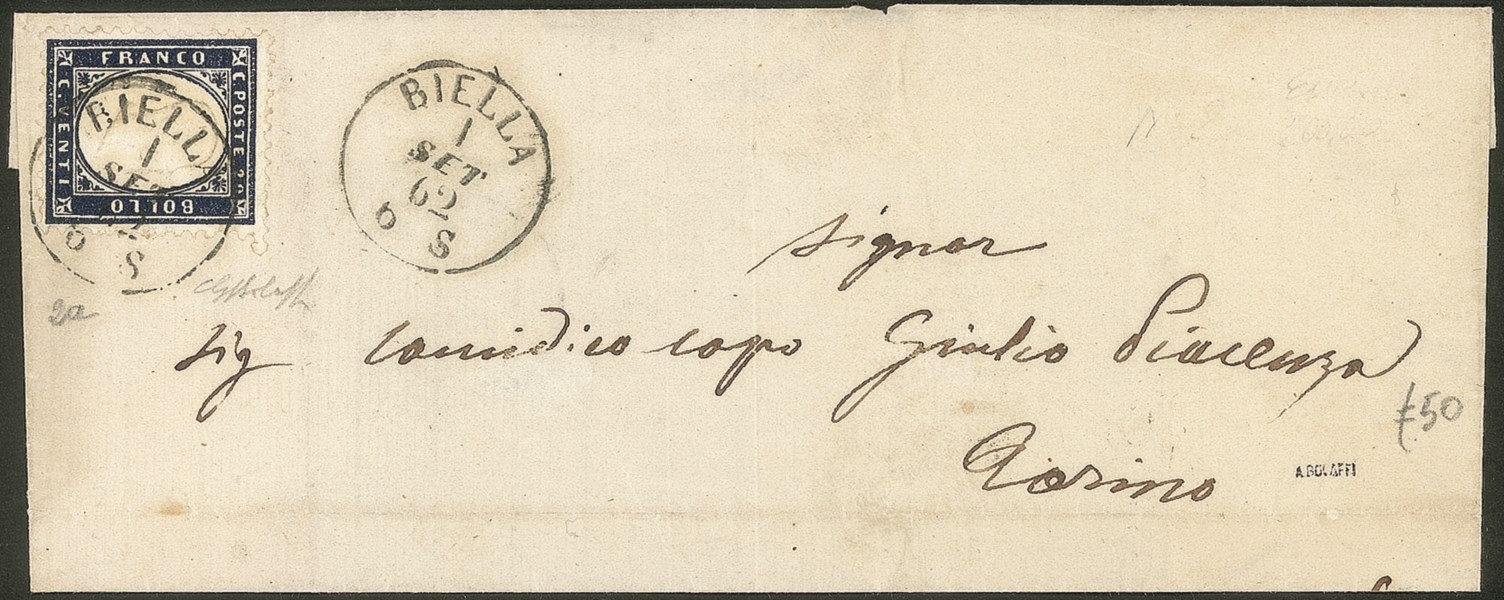 FRANCO
C. POSTE 20
BOLLO
C. VENTI
BIELLA
1
SET
62
6 S
BIELLA
1
SET
62
6 S
signor
sig causidico capo Giulio Piacenza
Torino
£50
2a
A.BOLAFFI